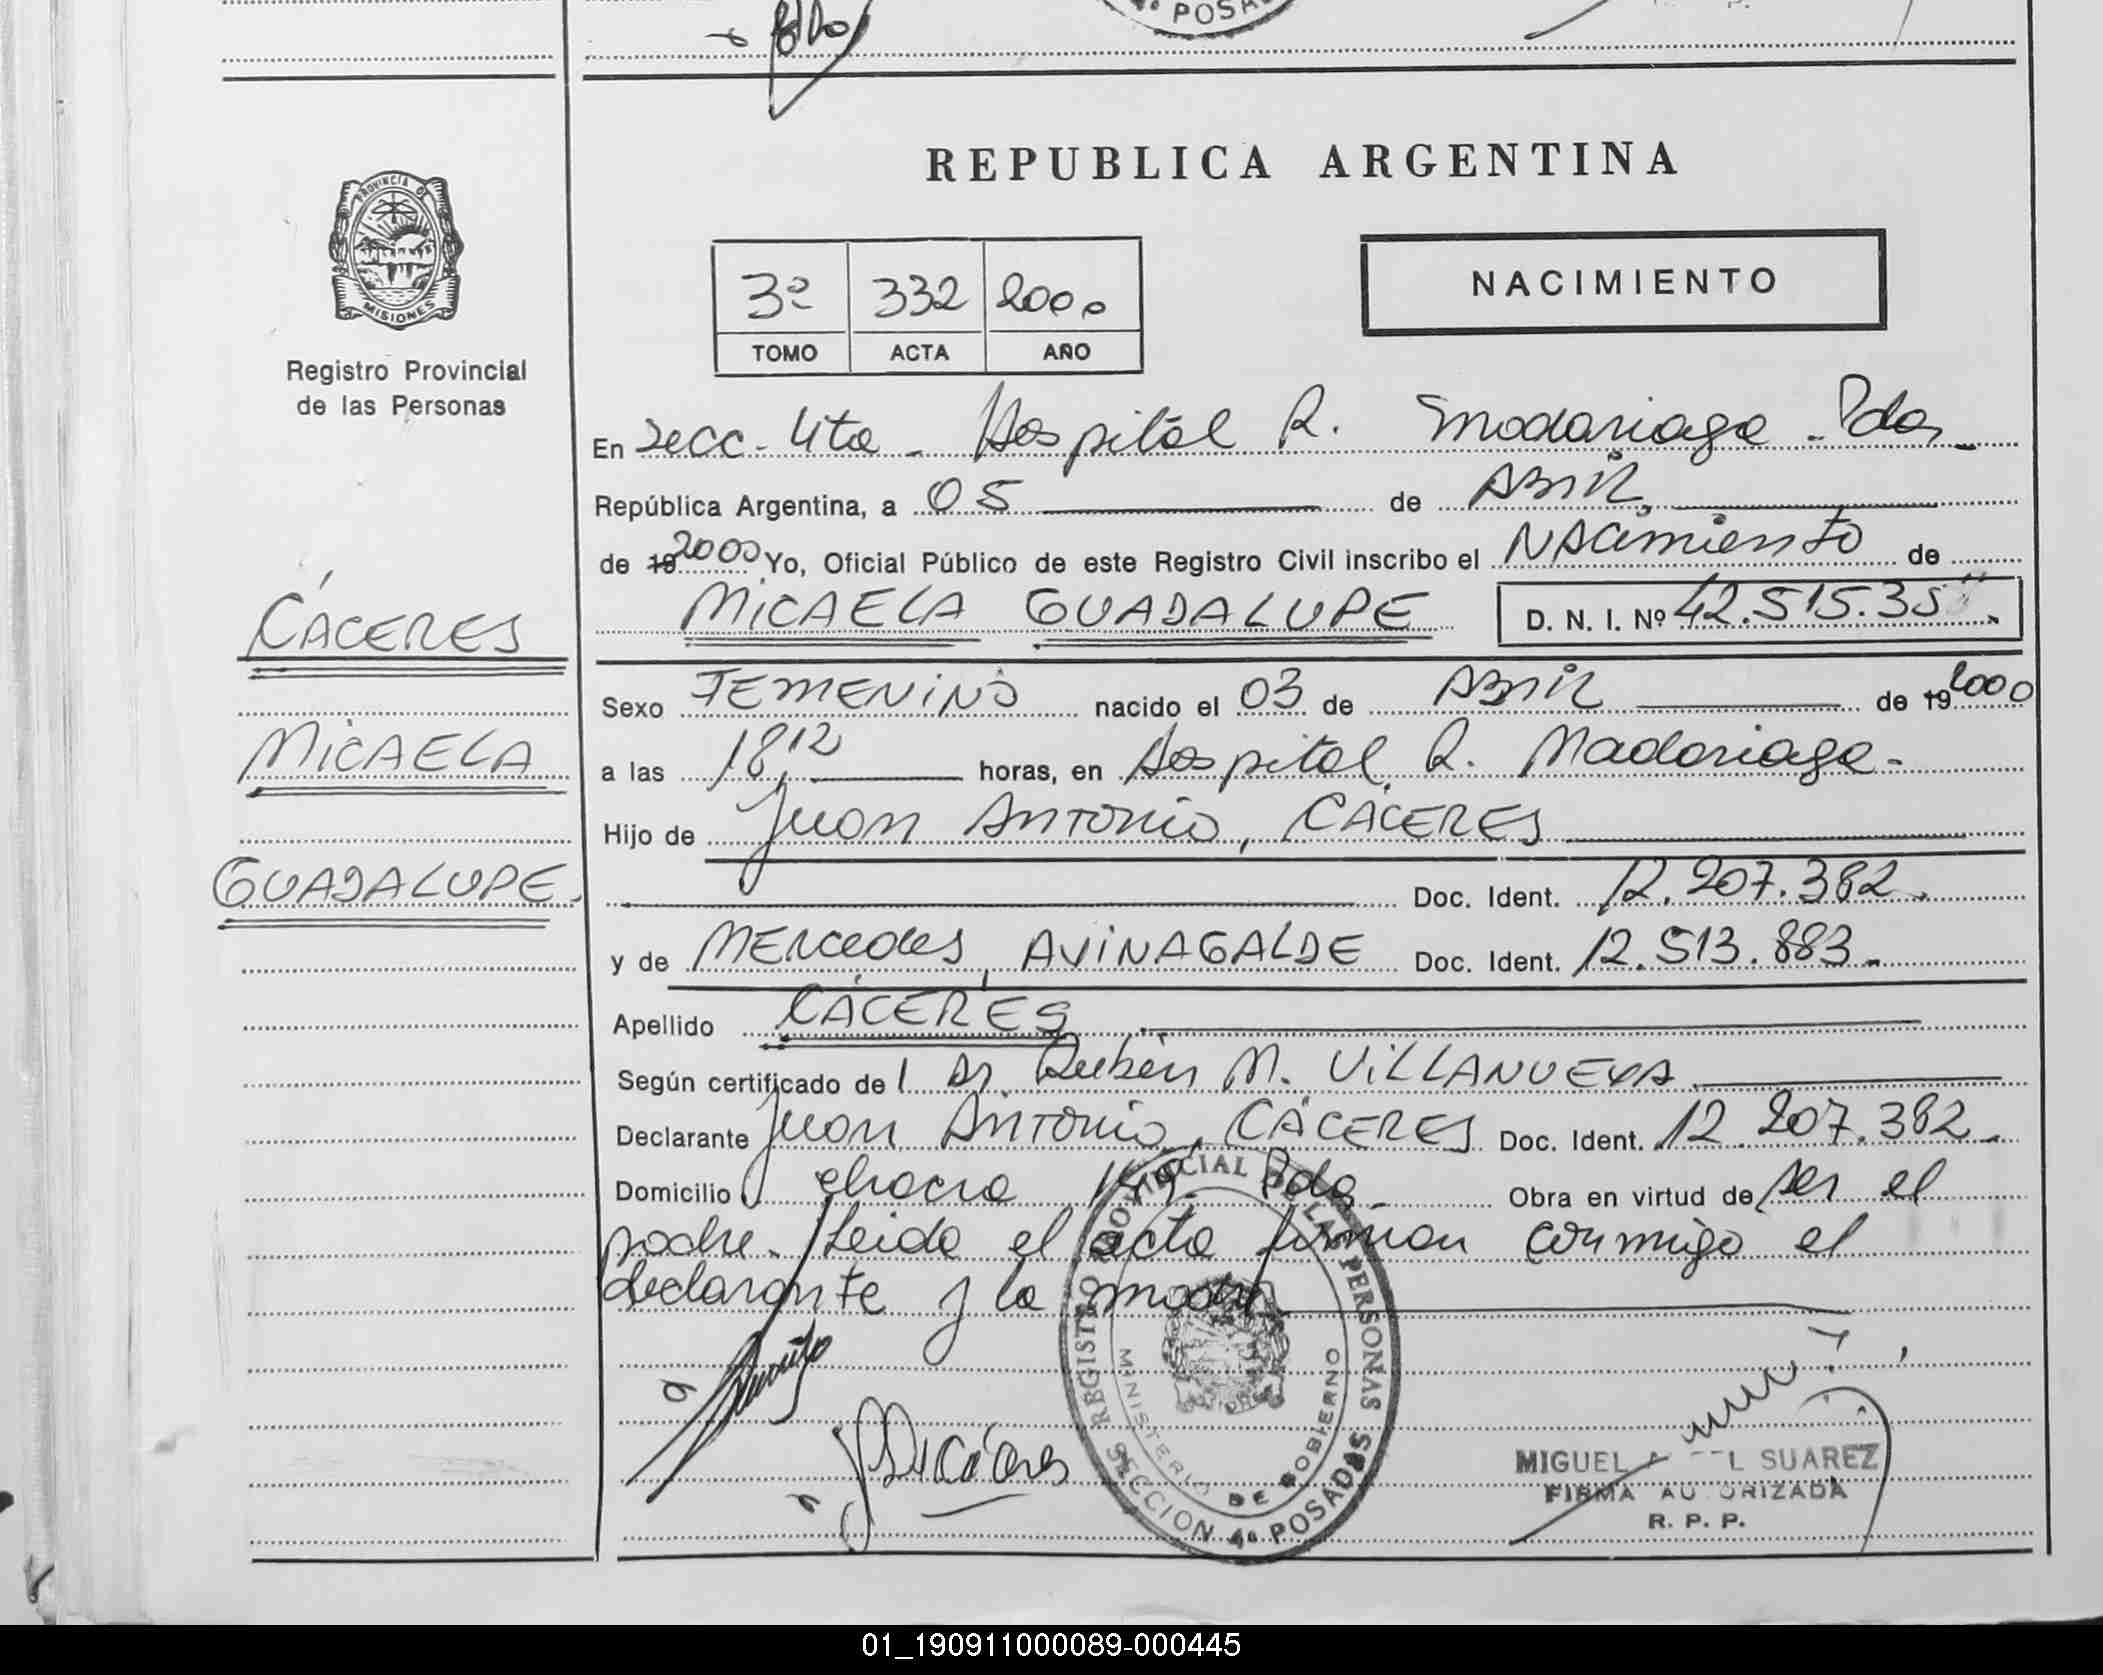 POSA
REPUBLICA ARGENTINA
PROVINCIA DE
MISIONES
Registro Provincial
de las Personas
3º 332 2000
TOMO ACTA AÑO
NACIMIENTO
En Secc. 4ta - Hospital R. Madariaga - Pdas
República Argentina, a 05 de Abril
de 19 2000 Yo, Oficial Público de este Registro Civil inscribo el NAcimiento de
MICAELA GUADALUPE D. N. I. Nº 42.515.35
CÁCERES
MICAELA
GUADALUPE.
Sexo FEMENINO nacido el 03 de Abril de 19 2000
a las 18,12 horas, en Hospital R. Madariaga -
Hijo de Juan Antonio, CÁCERES
Doc. Ident. 12.207.382.
y de MERcedes, AVINAGALDE Doc. Ident. 12.513.883.
Apellido CÁCERES
Según certificado del Dr. Rubén M. VILLANUEVA
Declarante Juan Antonio, CÁCERES Doc. Ident. 12.207.382.
Domicilio chacra 149. Pdas Obra en virtud de ser el
padre. Leida el acta firman conmigo el
declarante y la madre
REGISTRO PROVINCIAL DE LAS PERSONAS
MINISTERIO DE GOBIERNO
SECCION 4ª POSADAS
MIGUEL L SUAREZ
FIRMA AUTORIZADA
R. P. P.
01_190911000089-000445